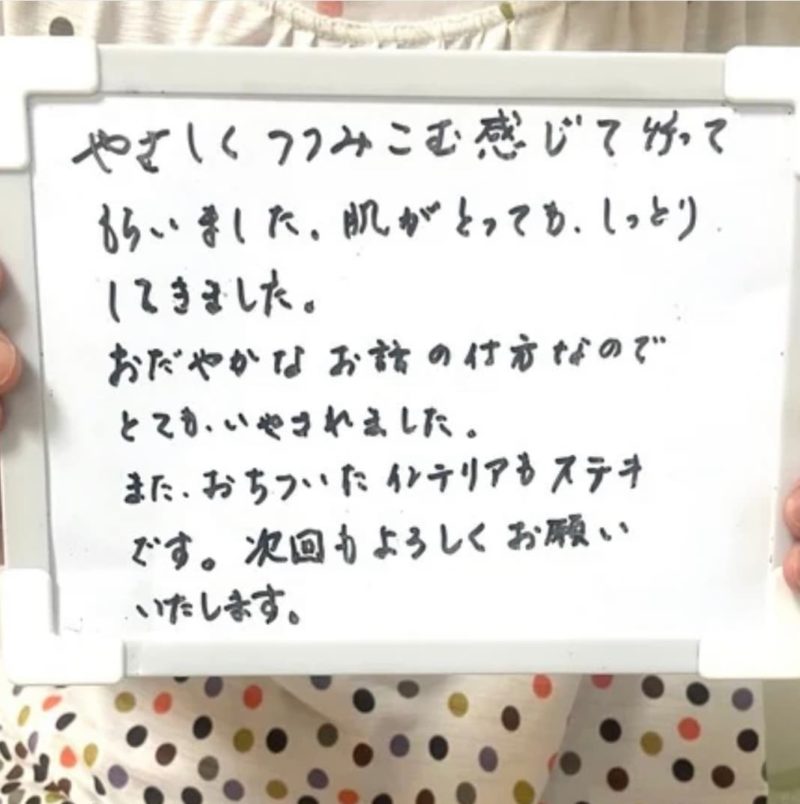 やさしくつつみこむ感じで行って
もらいました。肌がとっても、しっとり
してきました。
おだやかなお話の仕方なので
とても、いやされました。
また、おちついたインテリアもステキ
です。次回もよろしくお願い
いたします。